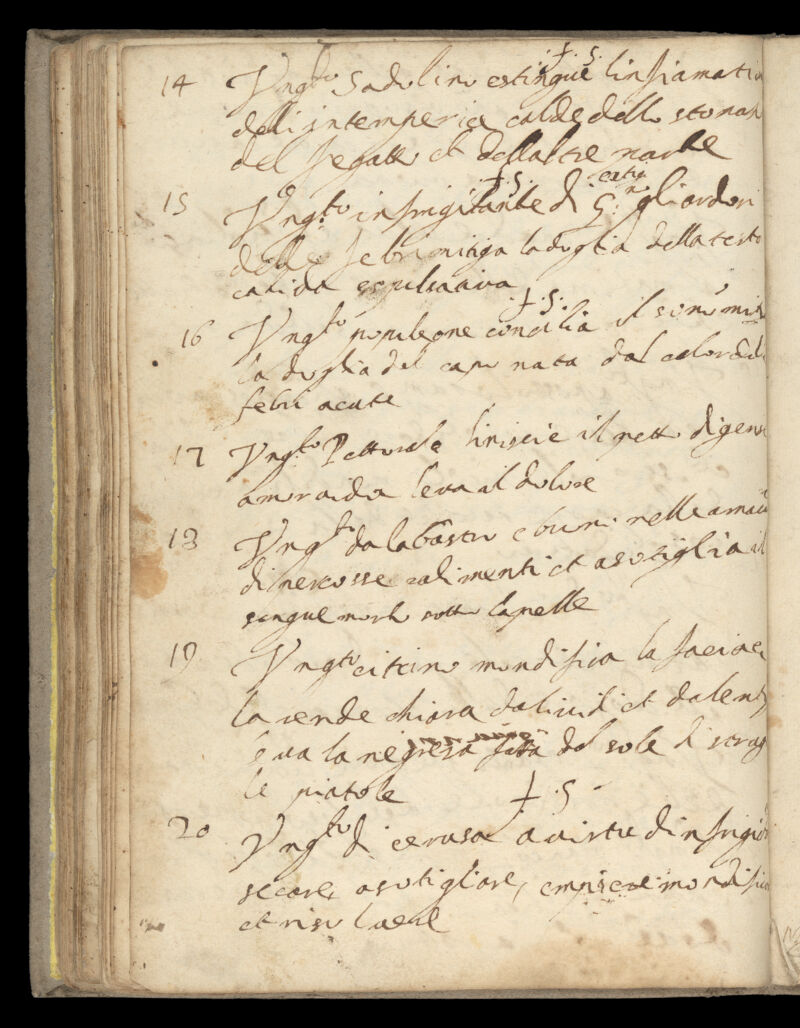 .‡. S.
14 Vng.to Sadolino estingue linfiamati
deli intemperia calde dello stomah
del fegatto et dellaltre parte
.‡. S.
15 Vng.to infrigitante di G: gliardori
delle febri mitiga la doglia della testa
calida
.‡. S.
16 Vng.to popoleone concilia il sono miti
la doglia del capo nata dal calor deli
febri acute
17 Vng.to Pettorale linisie il petto digeri
leua il dolore
18 Vng.to dalabastro e buni nelle amaca
di percosse et asotiglia il
sangue morto sotto la pelle
19 Vng.to citrino mondifica la facia et
la rende chiara dalividi et dalenti
leua la negresa fatta dal sole
le piatole
‡. S
20 Vng.to di cerusa a virtu dinfrigid
secare, asotigliare, empiere mondifica
et